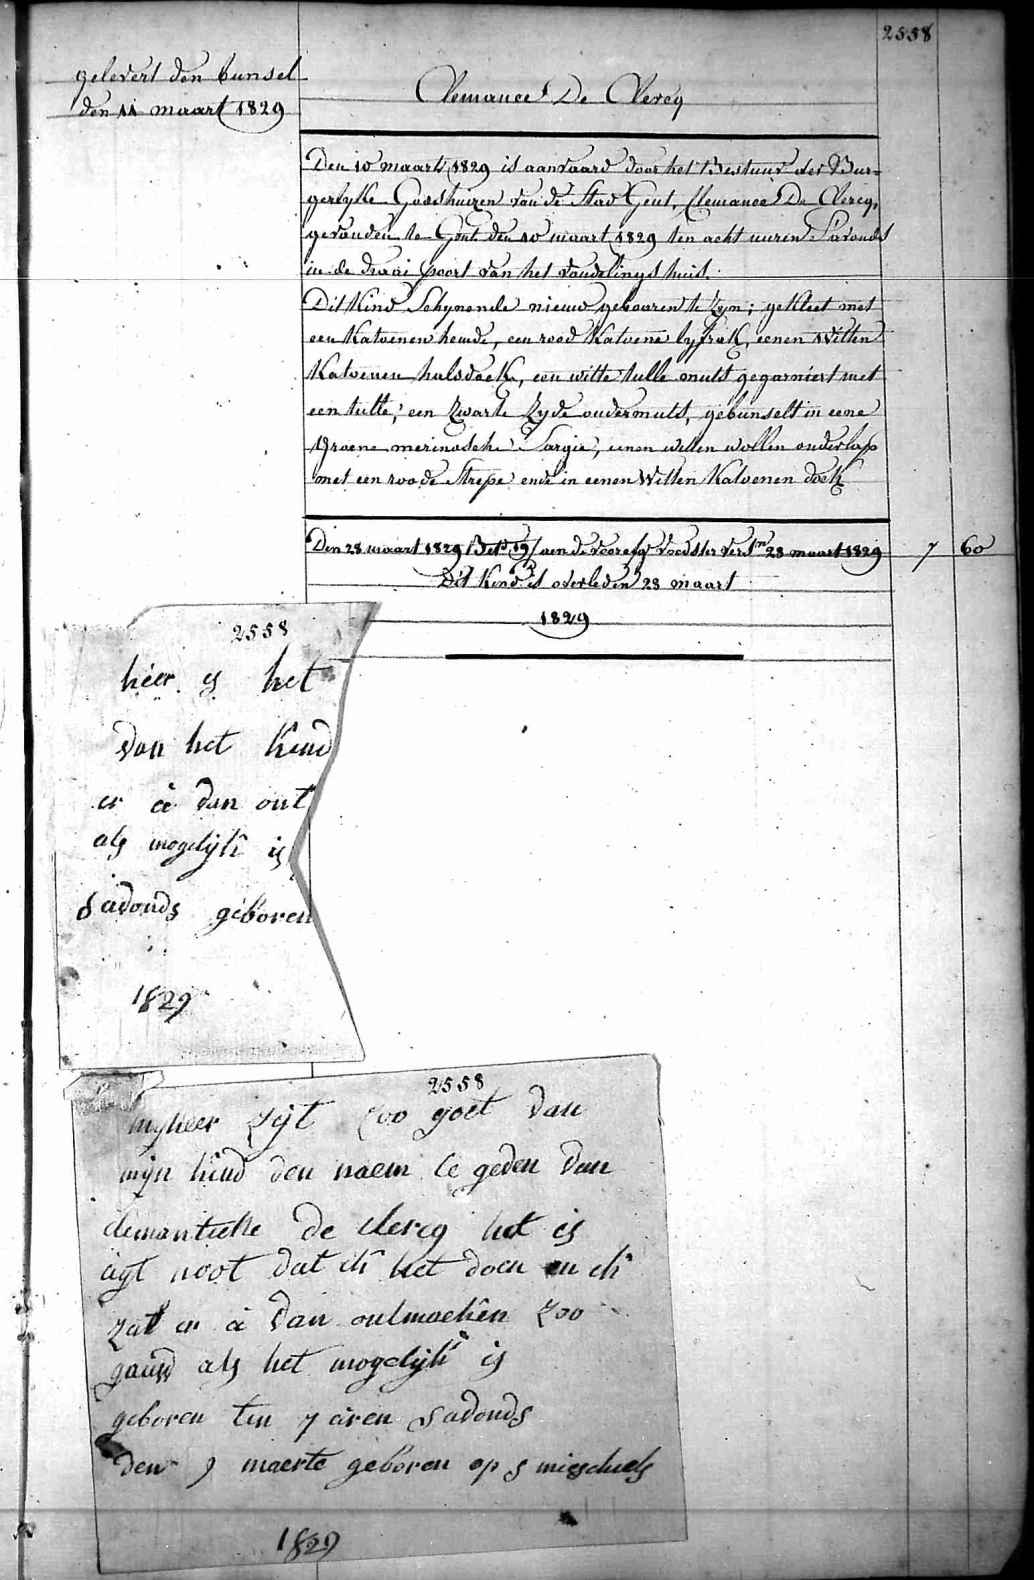 2558
gelevert den bunsel
den 11 maart 1829
Clemance De Clercq
Den 10 maart 1829 is aanvaard door het Bestuur der Bur=
gerlyke Godshuizen van de Stad Gent, Clemance De Clercq,
gevonden te Gent den 10 maart 1829 ten acht uuren S'avonds
in de draai poort van het vondelings huis.
Dit Kind Schynende nieuw gebooren te Zyn; gekleet met
een Katoenen hemde, een rood Katoene lyfrok, eenen Witten
Katoenen halsdoek, een witte tulle muts gegarniert met
een tulle, een Zwarte Zyde ondermuts, gebunselt in eene
groene merinosche Sargie, eenen witten wollen onderlap
met een roode Strepe ende in eenen Witten Katoenen doek
Den 28 maart 1829 Betd 19 aen de voorsg voedster verstn 28 maart 1829 7 60
Dit Kind is overleden 28 maart
1829
2558
héer is het
van het kind
er à van ont
als mogelijk is
savonds geboren
1829
2558
mijheer zijt zoo goet van
mijn kind den naem te geven van
clemantiehe de clercq het is
uÿt noot dat ik het doen en ik
zal er à van ontmaeken zoo
gauw als het mogelijk is
geboren ten 7 uren savonds
den 9 maerte geboren op s
1829